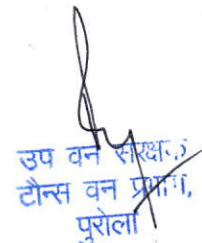 उप वन संरक्षक
टौन्स वन प्रभाग,
पुरोला